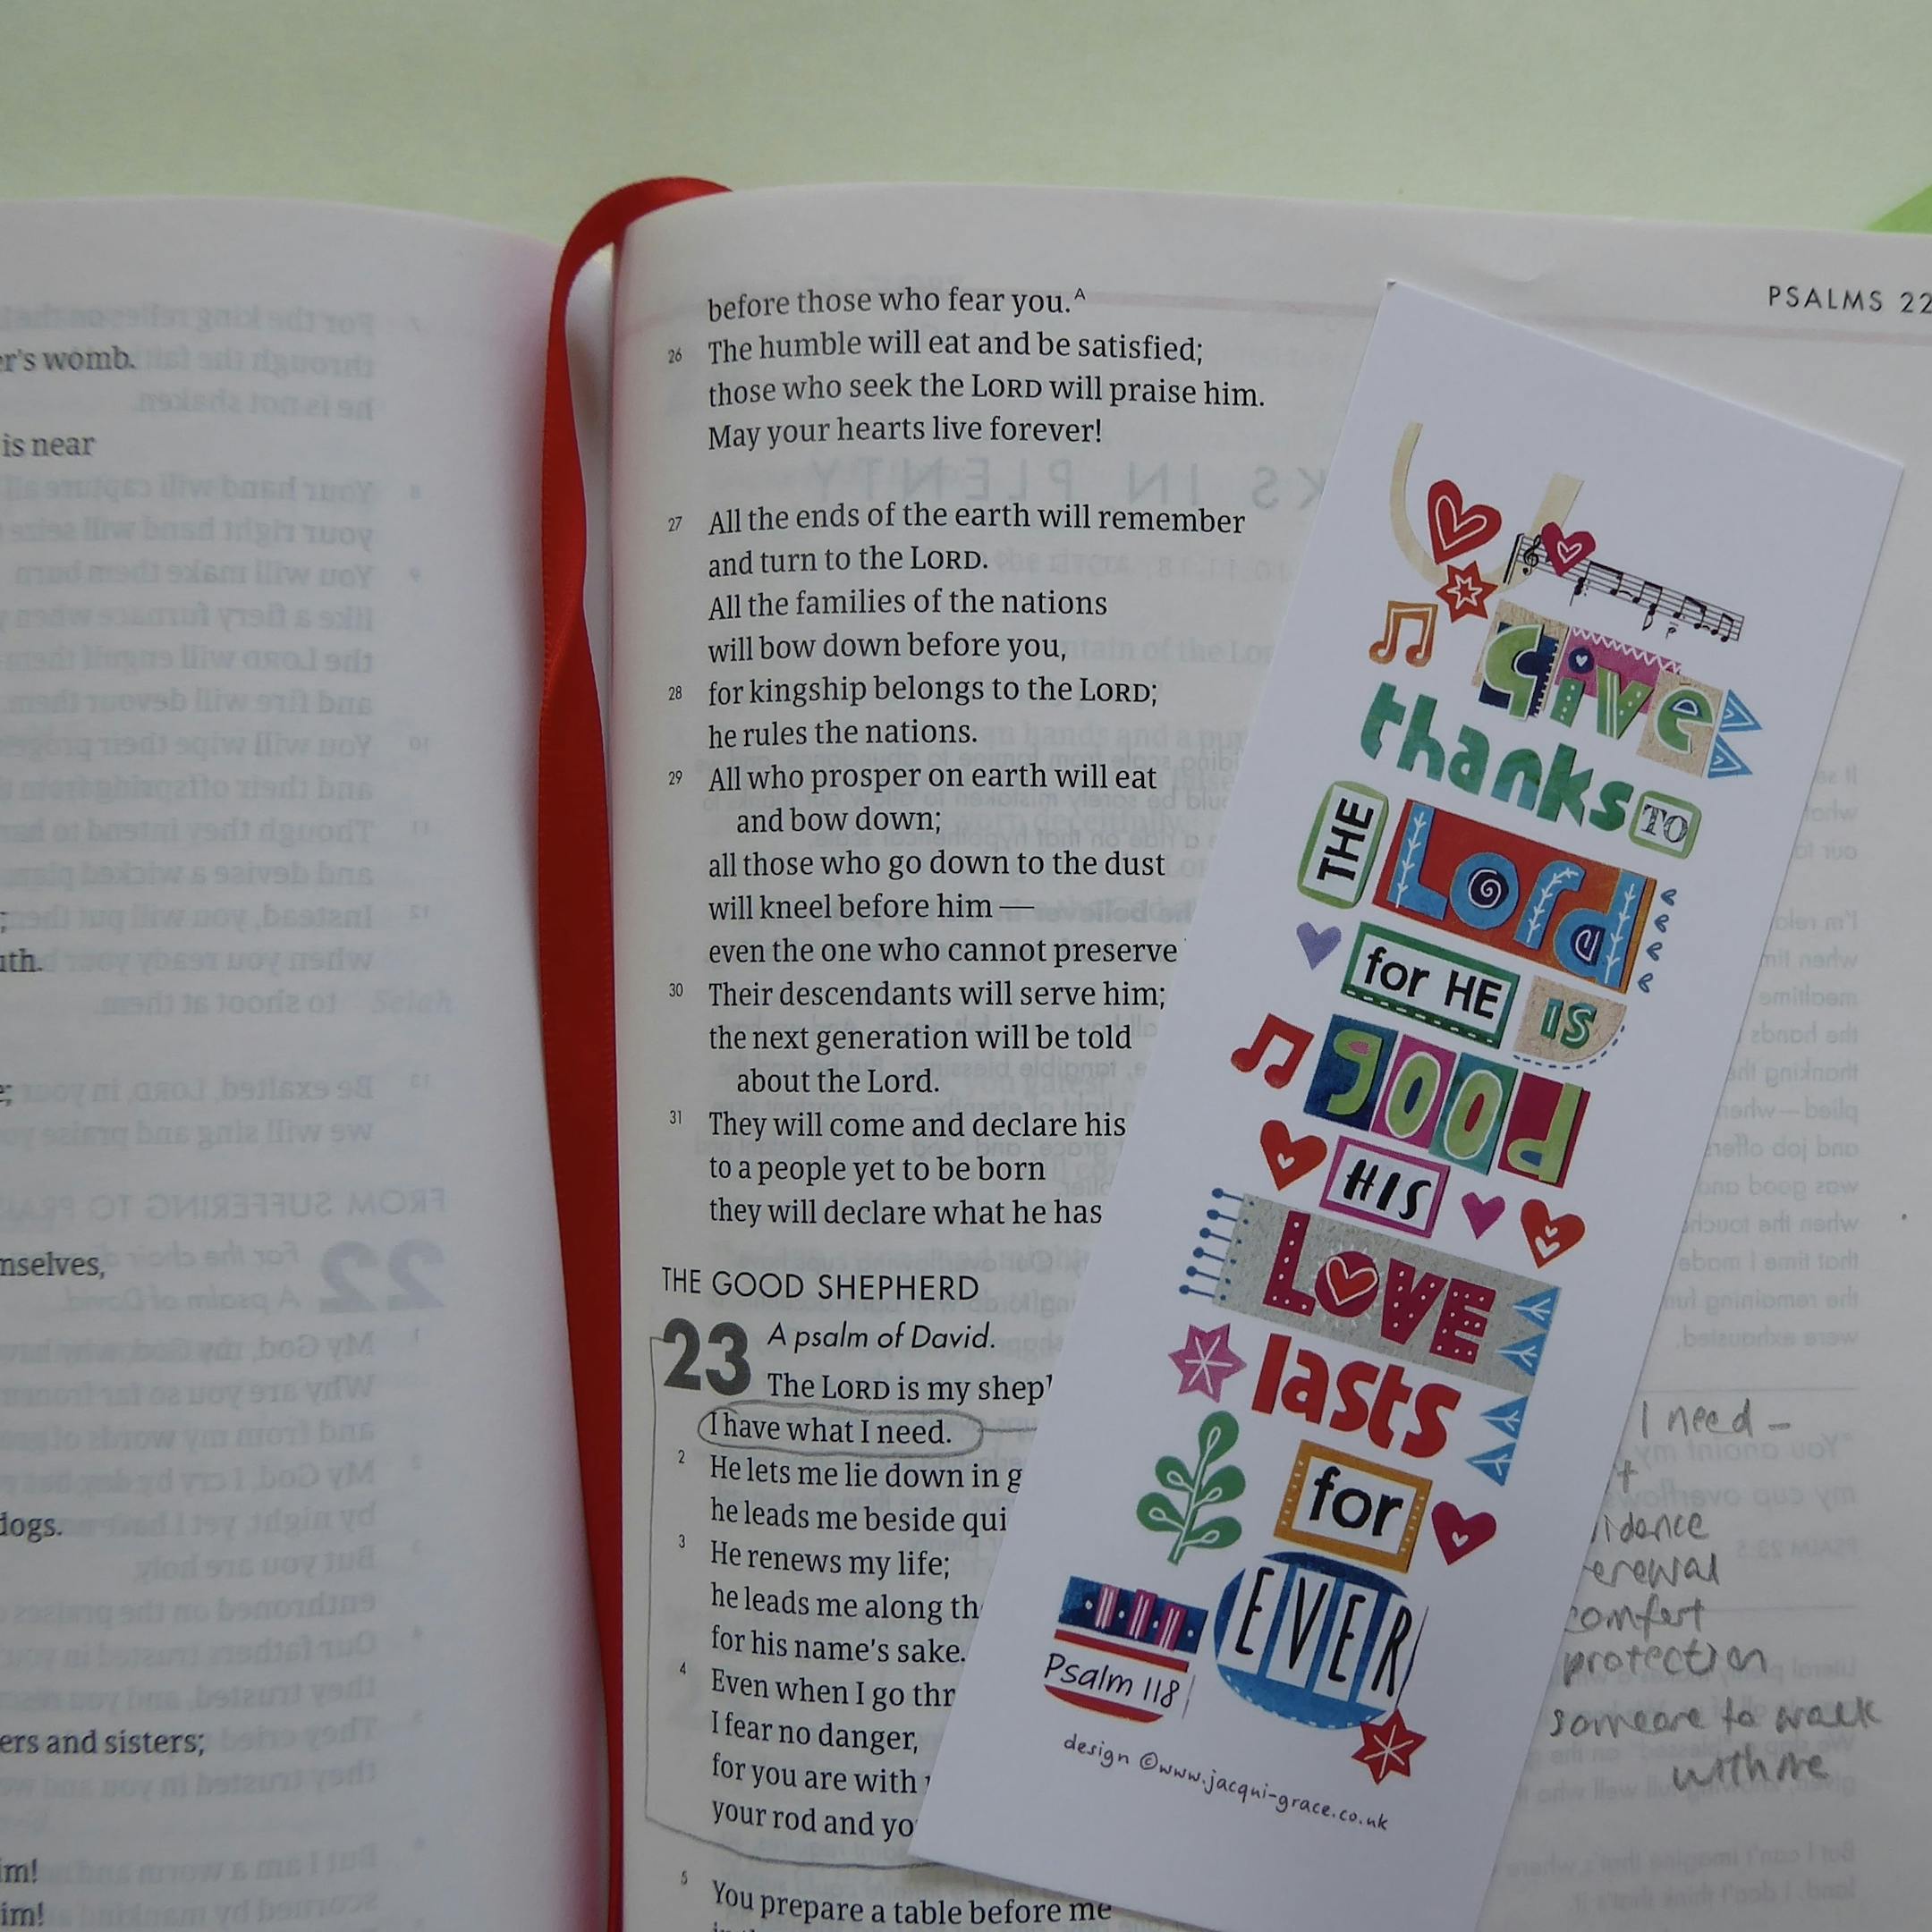 er's womb.
is near
;
uth.
e;
mselves,
dogs.
ers and sisters;
im!
im!
PSALMS 22
before those who fear you.A
26 The humble will eat and be satisfied;
those who seek the LORD will praise him.
May your hearts live forever!
27 All the ends of the earth will remember
and turn to the LORD.
All the families of the nations
will bow down before you,
28 for kingship belongs to the LORD;
he rules the nations.
29 All who prosper on earth will eat
and bow down;
all those who go down to the dust
will kneel before him —
even the one who cannot preserve
30 Their descendants will serve him;
the next generation will be told
about the Lord.
31 They will come and declare his
to a people yet to be born
they will declare what he has
THE GOOD SHEPHERD
23 A psalm of David.
The LORD is my shep
I have what I need.
2 He lets me lie down in g
he leads me beside qui
3 He renews my life;
he leads me along th
for his name's sake.
4 Even when I go thr
I fear no danger,
for you are with
your rod and yo
5 You prepare a table before me
Give
thanks TO
THE Lord
for HE IS
good
HIS
LOVE
lasts
for
EVER
Psalm 118
design ©www.jacqui-grace.co.uk
I need -
t
idence
erewal
comfort
protection
someone to walk
with me